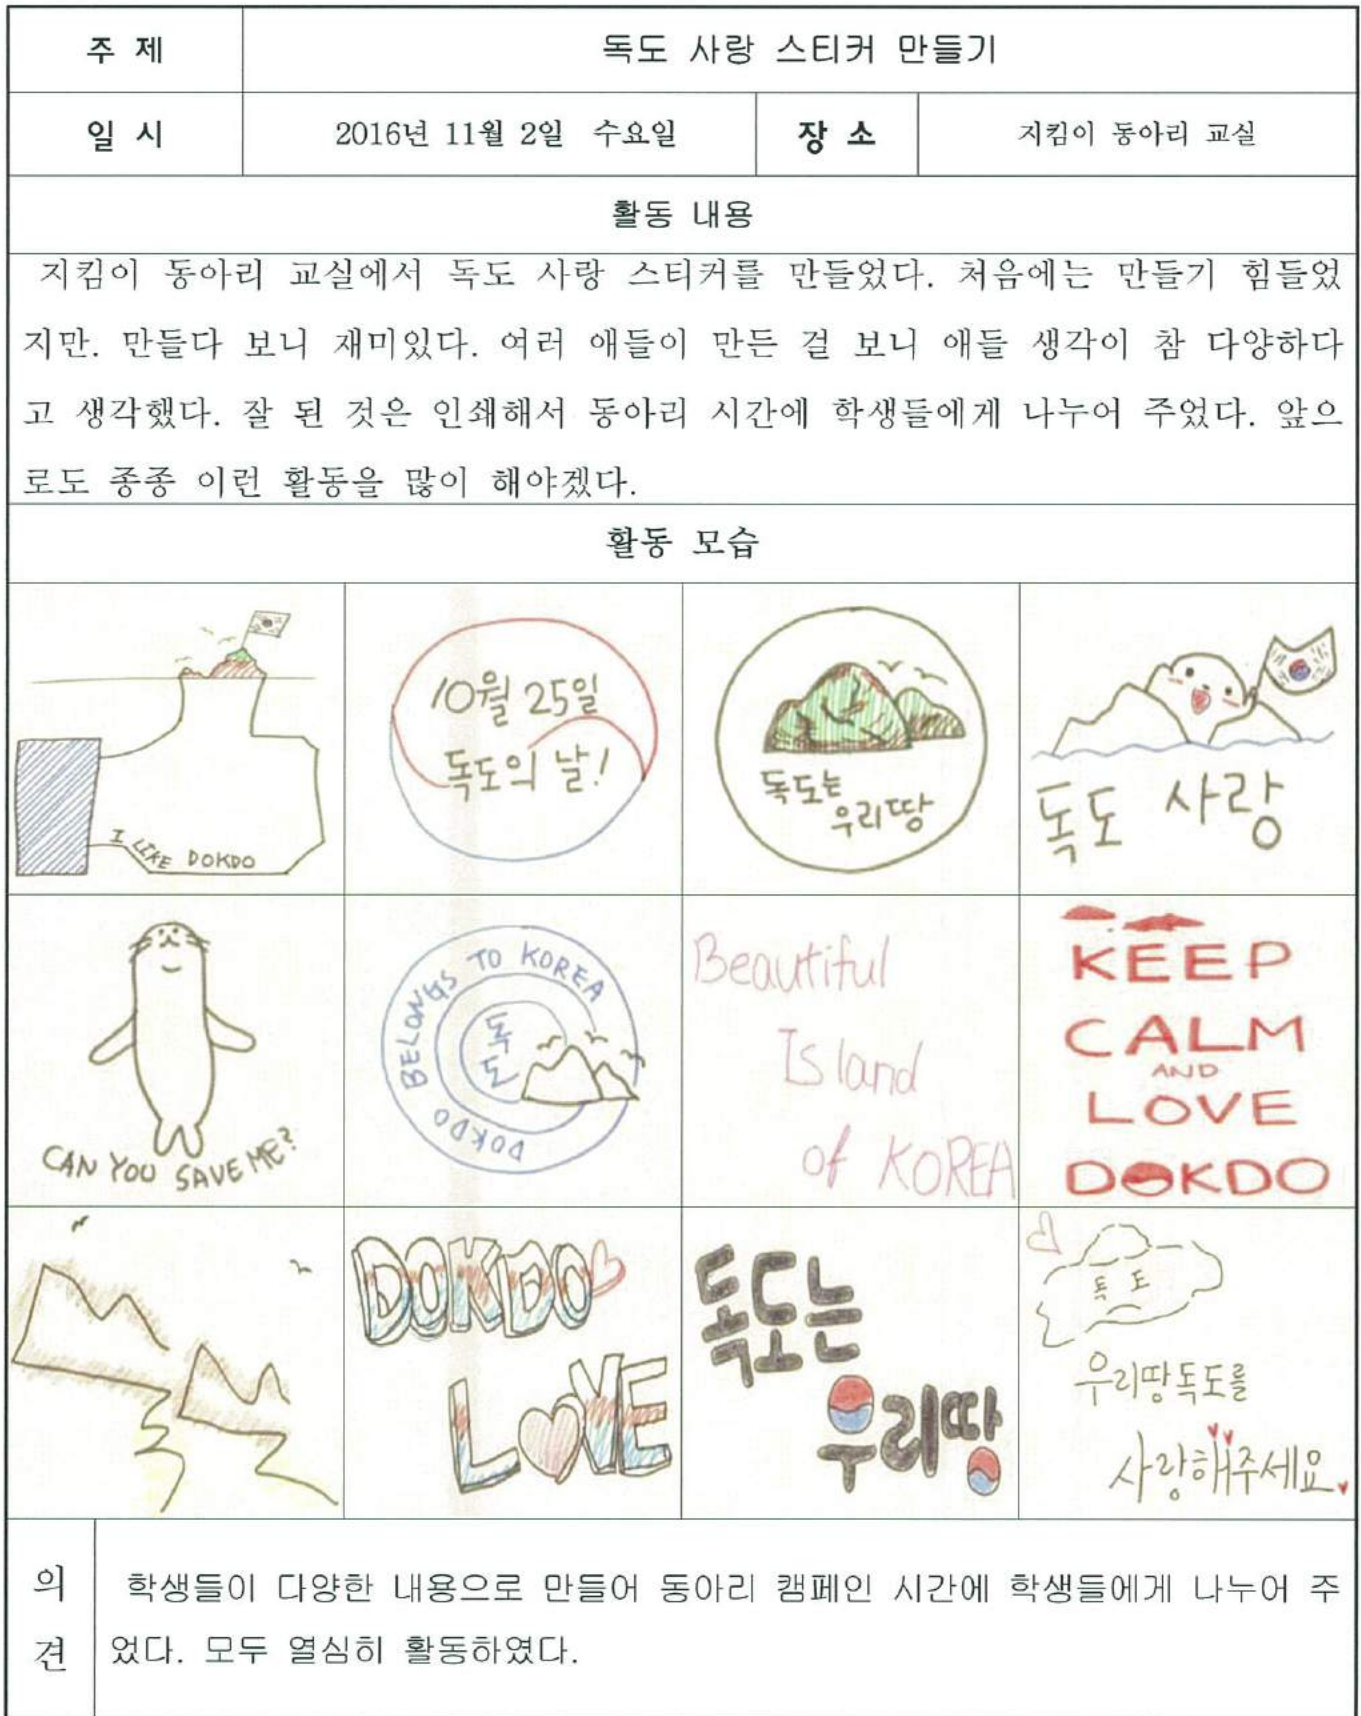 주 제
독도 사랑 스티커 만들기
일 시
2016년 11월 2일 수요일
장 소
지킴이 동아리 교실
활동 내용
지킴이 동아리 교실에서 독도 사랑 스티커를 만들었다. 처음에는 만들기 힘들었
지만. 만들다 보니 재미있다. 여러 애들이 만든 걸 보니 애들 생각이 참 다양하다
고 생각했다. 잘 된 것은 인쇄해서 동아리 시간에 학생들에게 나누어 주었다. 앞으
로도 종종 이런 활동을 많이 해야겠다.
활동 모습
I LIKE DOKDO
10월 25일
독도의 날!
독도는
우리땅
독도 사랑
CAN YOU SAVE ME?
DOKDO BELONGS TO KOREA
독
도
Beautiful
Island
of KOREA
KEEP
CALM
AND
LOVE
DOKDO
DOKDO
LOVE
독도는
우리땅
독도
우리땅독도를
사랑해주세요
의
견
학생들이 다양한 내용으로 만들어 동아리 캠페인 시간에 학생들에게 나누어 주
었다. 모두 열심히 활동하였다.